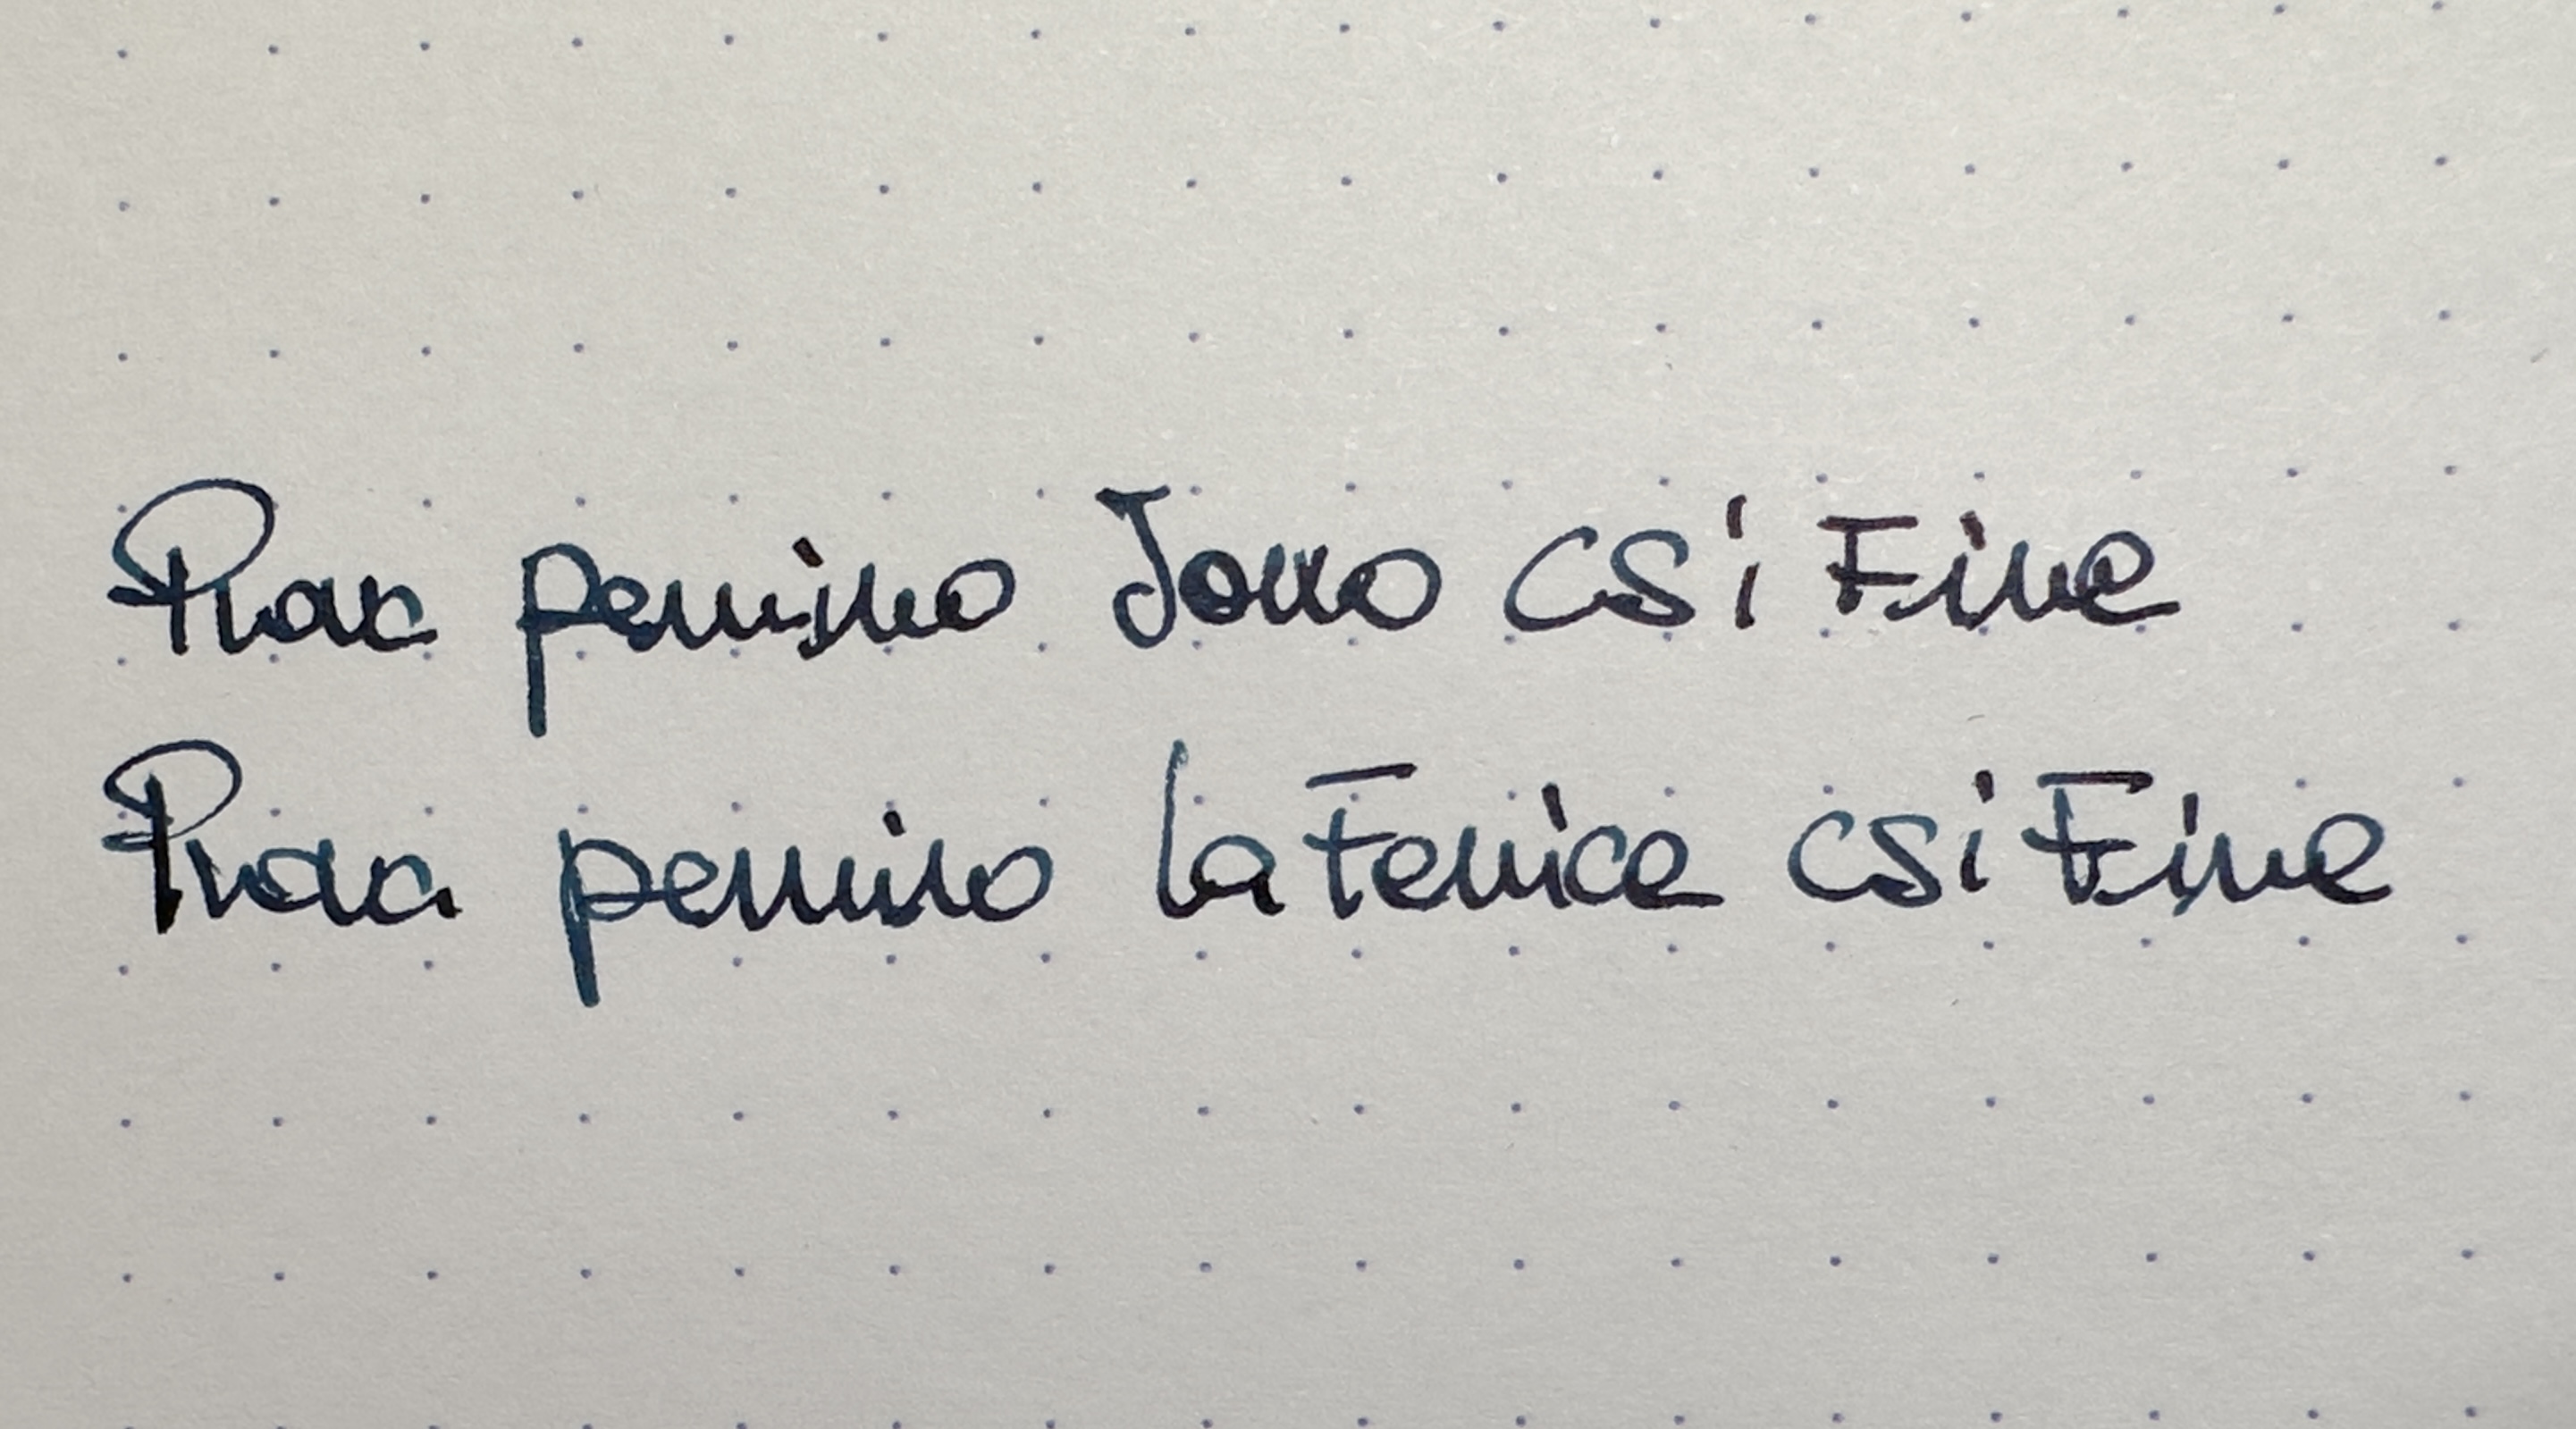 Prova pennino Jowo CSi Fine
Prova pennino La Fenice CSi Fine